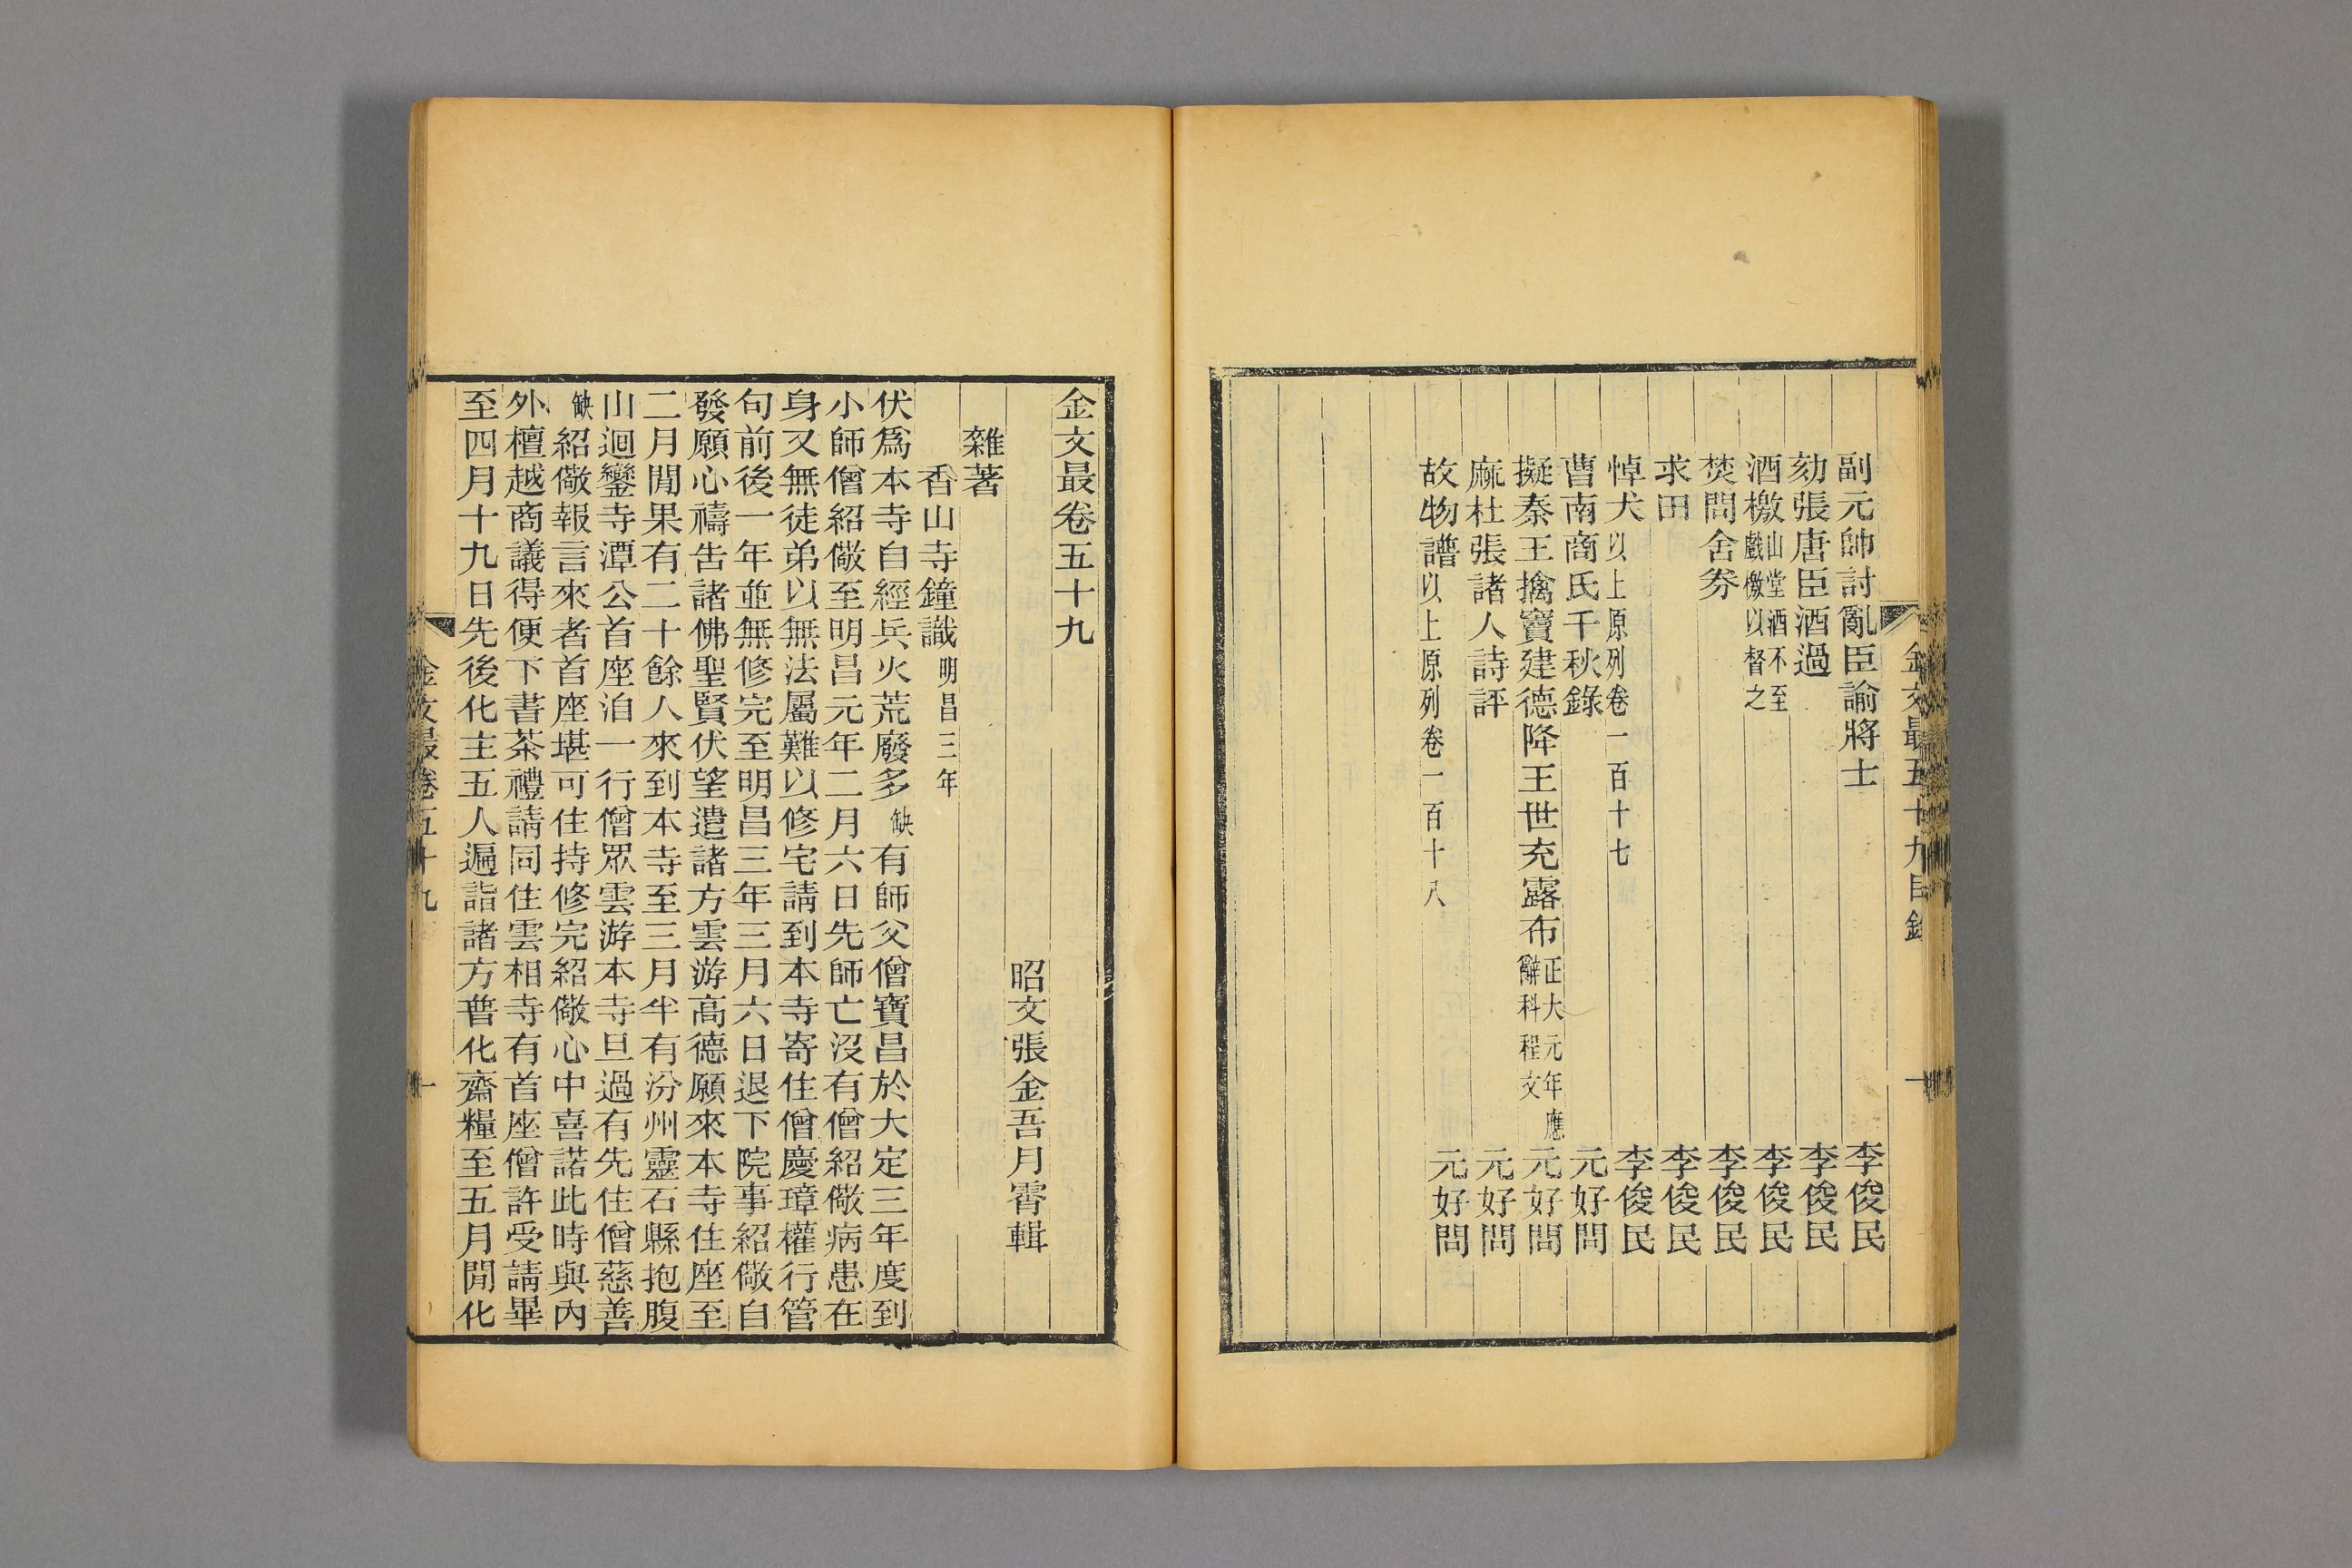 金文最五十九目錄
一
副元帥討亂臣諭將士 李俊民
劾張唐臣酒過 李俊民
酒檄山堂酒不至戲檄以督之 李俊民
焚問舍券 李俊民
求田 李俊民
悼犬以上原列卷一百十七 李俊民
曹南商氏千秋錄 元好問
擬秦王擒竇建德降王世充露布正大元年應辭科程文 元好問
麻杜張諸人詩評 元好問
故物譜以上原列卷一百十八 元好問
金文最卷五十九
昭文張金吾月霄輯
雜著
香山寺鐘識明昌三年
伏爲本寺自經兵火荒廢多缺有師父僧寶昌於大定三年度到
小師僧紹儆至明昌元年二月六日先師亡沒有僧紹儆病患在
身又無徒弟以無法屬難以修宅請到本寺寄住僧慶璋權行管
句前後一年並無修完至明昌三年三月六日退下院事紹儆自
發願心禱告諸佛聖賢伏望遣諸方雲游高德願來本寺住座至
二月閒果有二十餘人來到本寺至三月半有汾州靈石縣抱腹
山迴鑾寺潭公首座洎一行僧眾雲游本寺旦過有先住僧慈善
缺紹儆報言來者首座堪可住持修完紹儆心中喜諾此時與內
外檀越商議得便下書茶禮請同住雲相寺有首座僧許受請畢
至四月十九日先後化主五人遍詣諸方普化齋糧至五月閒化
金文最卷五十九
一